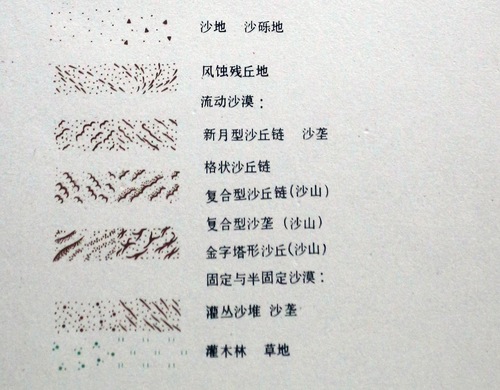 沙地 沙砾地
风蚀残丘地
流动沙漠:
新月型沙丘链 沙垄
格状沙丘链
复合型沙丘链(沙山)
复合型沙垄 (沙山)
金字塔形沙丘(沙山)
固定与半固定沙漠:
灌丛沙堆 沙垄
灌木林 草地